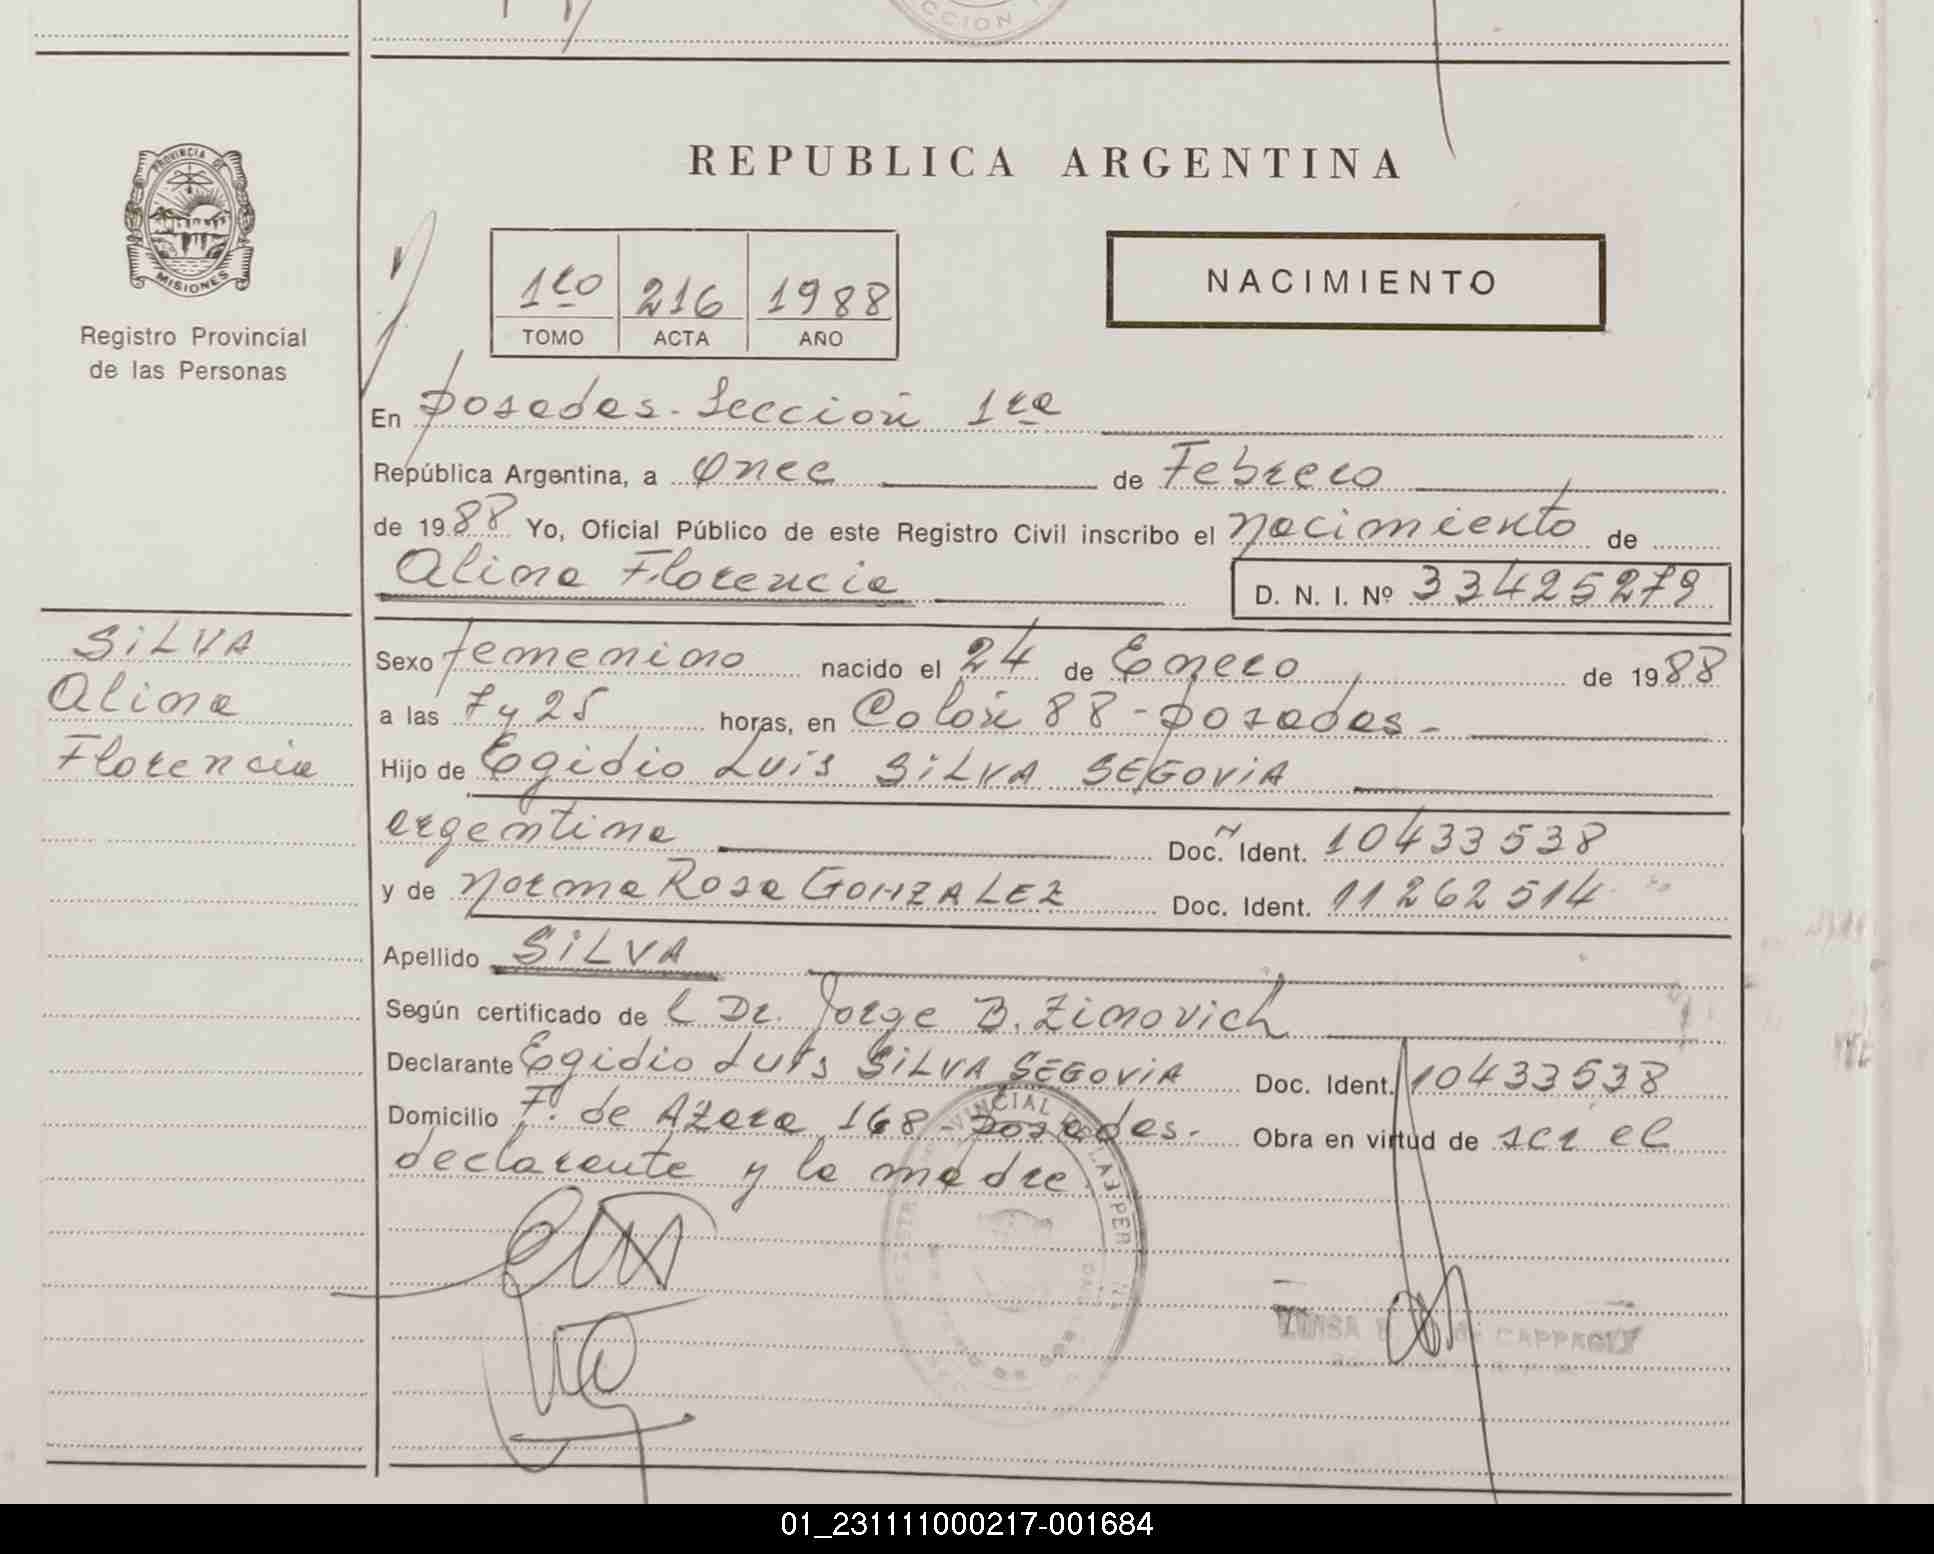 PROVINCIA DE
MISIONES
Registro Provincial
de las Personas
REPUBLICA ARGENTINA
1ro 216 1988
TOMO ACTA AÑO
NACIMIENTO
En Posadas - Sección 1ra
República Argentina, a Once de Febrero
de 1988 Yo, Oficial Público de este Registro Civil inscribo el Nacimiento de
Alina Florencia D. N. I. Nº 33425279
SILVA
Alina
Florencia
Sexo femenino nacido el 24 de Enero de 1988
a las 7 y 25 horas, en Colón 88 - Posadas -
Hijo de Egidio Luis SILVA SEGOVIA
argentina Doc. Ident. 10433538
y de Norma Rosa GONZALEZ Doc. Ident. 11262514
Apellido SILVA
Según certificado de l Dr. Jorge B. Zinovich
Declarante Egidio Luis SILVA SEGOVIA Doc. Ident. 10433538
Domicilio F. de Azara 168 - Posadas - Obra en virtud de ser el
declarante y la madre.
01_231111000217-001684